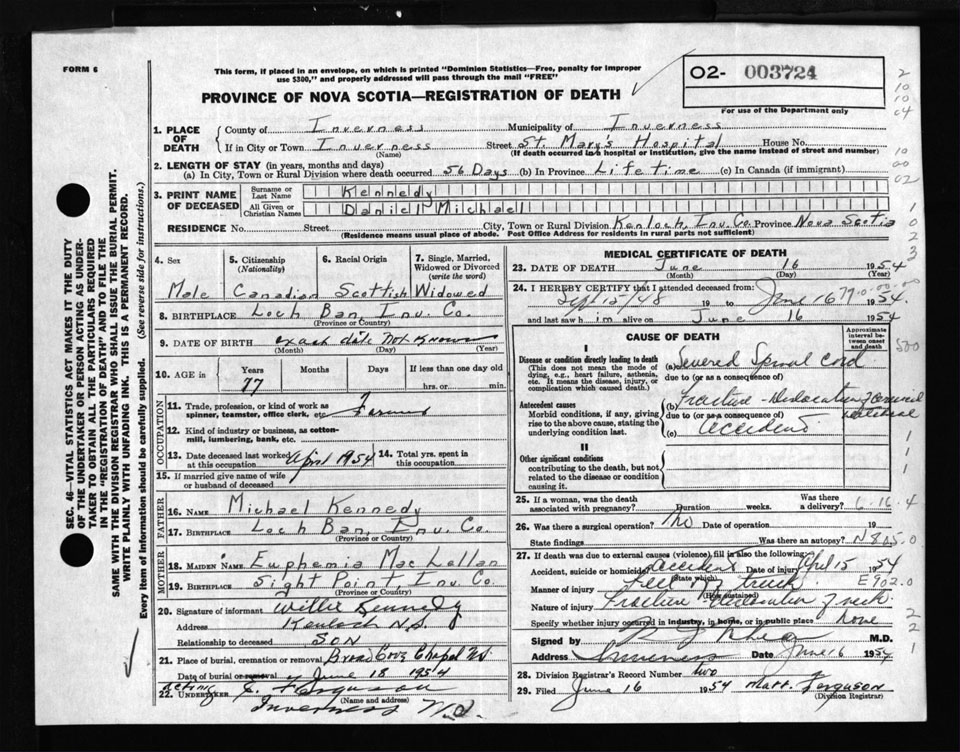 FORM 6
This form, if placed in an envelope, on which is printed "Dominion Statistics—Free, penalty for improper
use $300," and properly addressed will pass through the mail "FREE"
PROVINCE OF NOVA SCOTIA—REGISTRATION OF DEATH
02- 003724
For use of the Department only
2
10
10
04
10
00
02
1
0
2
3
SEC. 46—VITAL STATISTICS ACT MAKES IT THE DUTY
OF THE UNDERTAKER OR PERSON ACTING AS UNDER-
TAKER TO OBTAIN ALL THE PARTICULARS REQUIRED
IN THE "REGISTRATION OF DEATH" AND TO FILE THE
SAME WITH THE DIVISION REGISTRAR WHO SHALL ISSUE THE BURIAL PERMIT.
WRITE PLAINLY WITH UNFADING INK. THIS IS A PERMANENT RECORD.
Every item of information should be carefully supplied. (See reverse side for instructions.)
1. PLACE OF DEATH County of Inverness Municipality of Inverness
If in City or Town Inverness Street St. Mary's Hospital House No.
(Name) (If death occurred in a hospital or institution, give the name instead of street and number)
2. LENGTH OF STAY (in years, months and days)
(a) In City, Town or Rural Division where death occurred 56 Days (b) In Province Life time (c) In Canada (if immigrant)
3. PRINT NAME OF DECEASED Surname or Last Name Kennedy
All Given or Christian Names Daniel Michael
RESIDENCE No. Street City, Town or Rural Division Kenloch, Inv. Co. Province Nova Scotia
(Residence means usual place of abode. Post Office Address for residents in rural parts not sufficient)
4. Sex 5. Citizenship (Nationality) 6. Racial Origin 7. Single, Married, Widowed or Divorced (write the word)
Male Canadian Scottish Widowed
8. BIRTHPLACE Loch Ban, Inv. Co.
(Province or Country)
9. DATE OF BIRTH exact date not known
(Month) (Day) (Year)
10. AGE in Years Months Days If less than one day old
77 hrs. or min.
OCCUPATION
11. Trade, profession, or kind of work as
spinner, teamster, office clerk, etc. Farmer
12. Kind of industry or business, as cotton-
mill, lumbering, bank, etc.
13. Date deceased last worked at this occupation April 1954 14. Total yrs. spent in this occupation
15. If married give name of wife or husband of deceased
FATHER
16. NAME Michael Kennedy
17. BIRTHPLACE Loch Ban, Inv. Co.
(Province or Country)
MOTHER
18. MAIDEN NAME Euphemia MacLellan
19. BIRTHPLACE Sight Point, Inv. Co.
(Province or Country)
20. Signature of informant Willie Kennedy
Address Kenloch N.S
Relationship to deceased SON
21. Place of burial, cremation or removal Broad Cove Chapel NS
Date of burial or removal June 18 1954
Acting
22. UNDERTAKER E. Ferguson
(Name and address)
Inverness N.S.
MEDICAL CERTIFICATE OF DEATH
23. DATE OF DEATH June 16 1954
(Month) (Day)
24. I HEREBY CERTIFY that I attended deceased from:
Sept 15/48 19 to June 16 1954.
and last saw him alive on June 16 1954
CAUSE OF DEATH
Approximate interval between onset and death
500
I
Disease or condition directly leading to death
(This does not mean the mode of
dying, e.g., heart failure, asthenia,
etc. It means the disease, injury, or
complication which caused death.)
(a) Severed Spinal Cord
due to (or as a consequence of)
Antecedent causes
Morbid conditions, if any, giving
rise to the above cause, stating the
underlying condition last.
(b) Fracture - Dislocation of cervical vertebrae
due to (or as a consequence of)
(c) Accident
II
Other significant conditions
contributing to the death, but not
related to the disease or condition
causing it.
1
1
1
25. If a woman, was the death Was there
associated with pregnancy? Duration weeks. a delivery? 6-16-4
26. Was there a surgical operation? No Date of operation 19
State findings Was there an autopsy? N805.0
27. If death was due to external causes (violence), fill in also the following:
Accident, suicide or homicide? Accident Date of injury April 15 1954
(State which)
Manner of injury Fell off truck E902.0
(How sustained)
Nature of injury Fracture - dislocation of neck
Specify whether injury occurred in industry, in home, or in public place Home
Signed by M.D.
Address Inverness Date June 16 1954
2
2
1
28. Division Registrar's Record Number two
29. Filed June 16 1954 Matt. Ferguson
(Division Registrar)